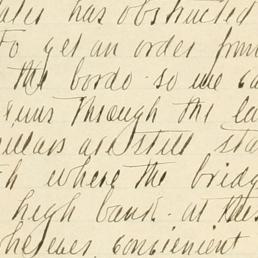 has obstructed
To get an order from
the bordo so we ca
runs through the la
pillars are still sta
h where the bridg
high bank at this
wherever convenient